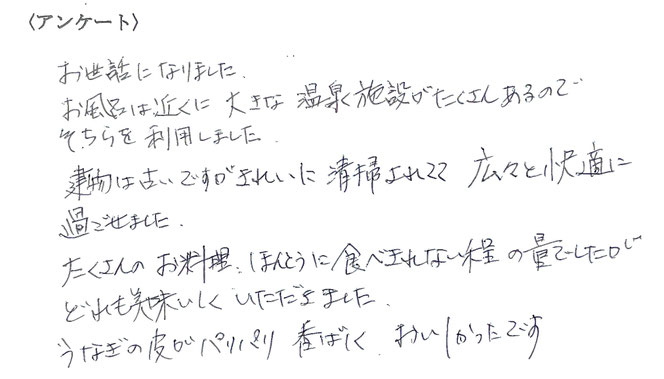 〈アンケート〉
お世話になりました.
お風呂は近くに 大きな 温泉施設がたくさんあるので
そちらを利用しました.
建物は古いですがきれいに 清掃されてて 広々と快適に
過ごせました.
たくさんの お料理、ほんとうに食べきれない程 の量でしたが
どれも美味しく いただきました.
うなぎの皮がパリパリ 香ばしく おいしかったです